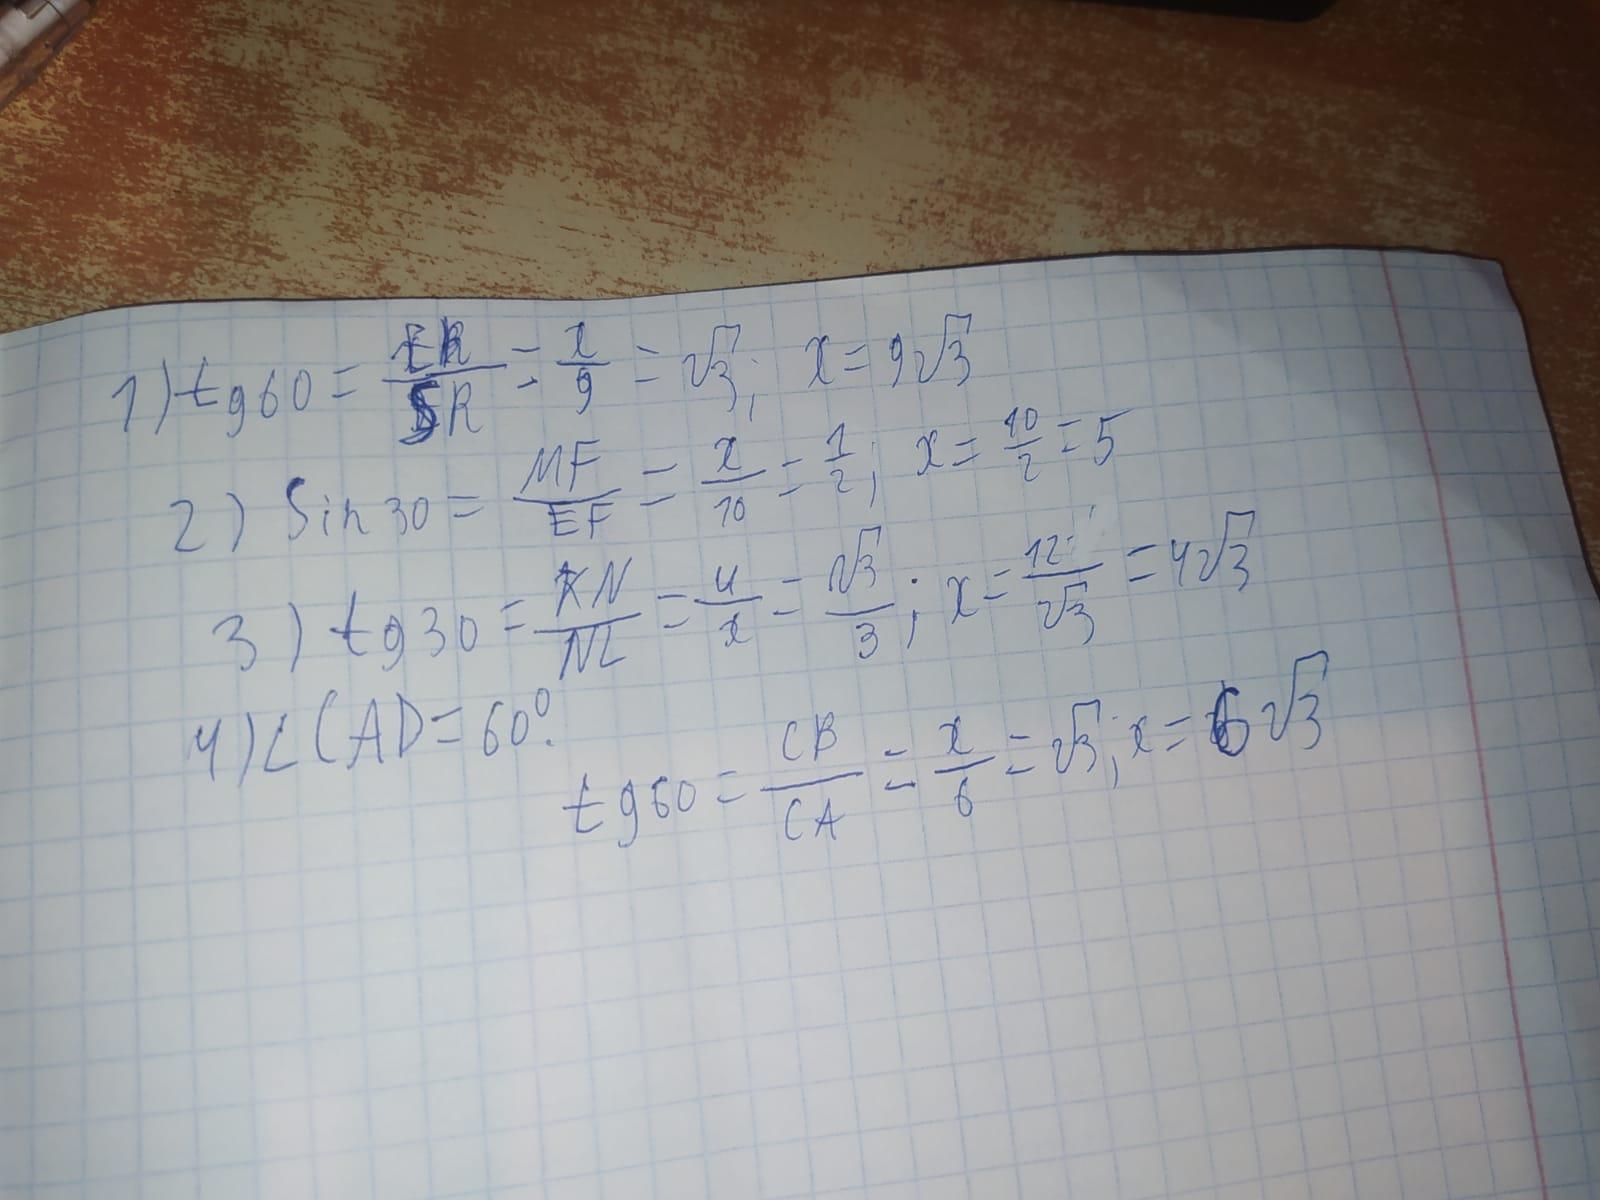 1) tg60 = ER/SR = x/9 = √3; x = 9√3
2) Sin30 = MF/EF = x/10 = 1/2; x = 10/2 = 5
3) tg30 = KN/NL = 4/x = √3/3; x = 12/√3 = 4√3
4) ∠CAD = 60°.
tg60 = CB/CA = x/6 = √3; x = 6√3